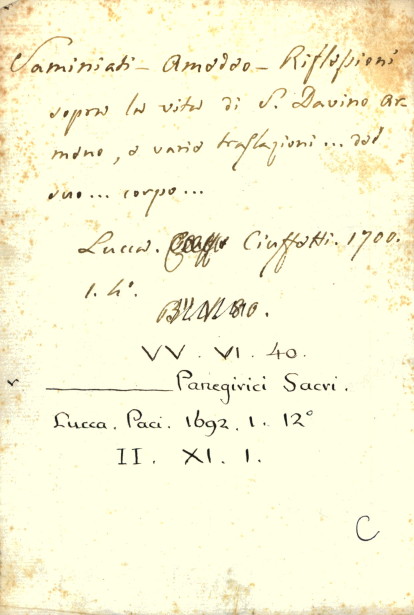 Saminiati - Amadao - Riflessioni
sopra la vita di S. Davino Ar-
meno, e varie traslazioni... del
suo... corpo...
Lucca. Ciuffetti. 1700.
1. 4°.
VV. VI. 40.
Panegirici Sacri.
Lucca. Paci. 1692. 1. 12°
II. XI. 1.
C